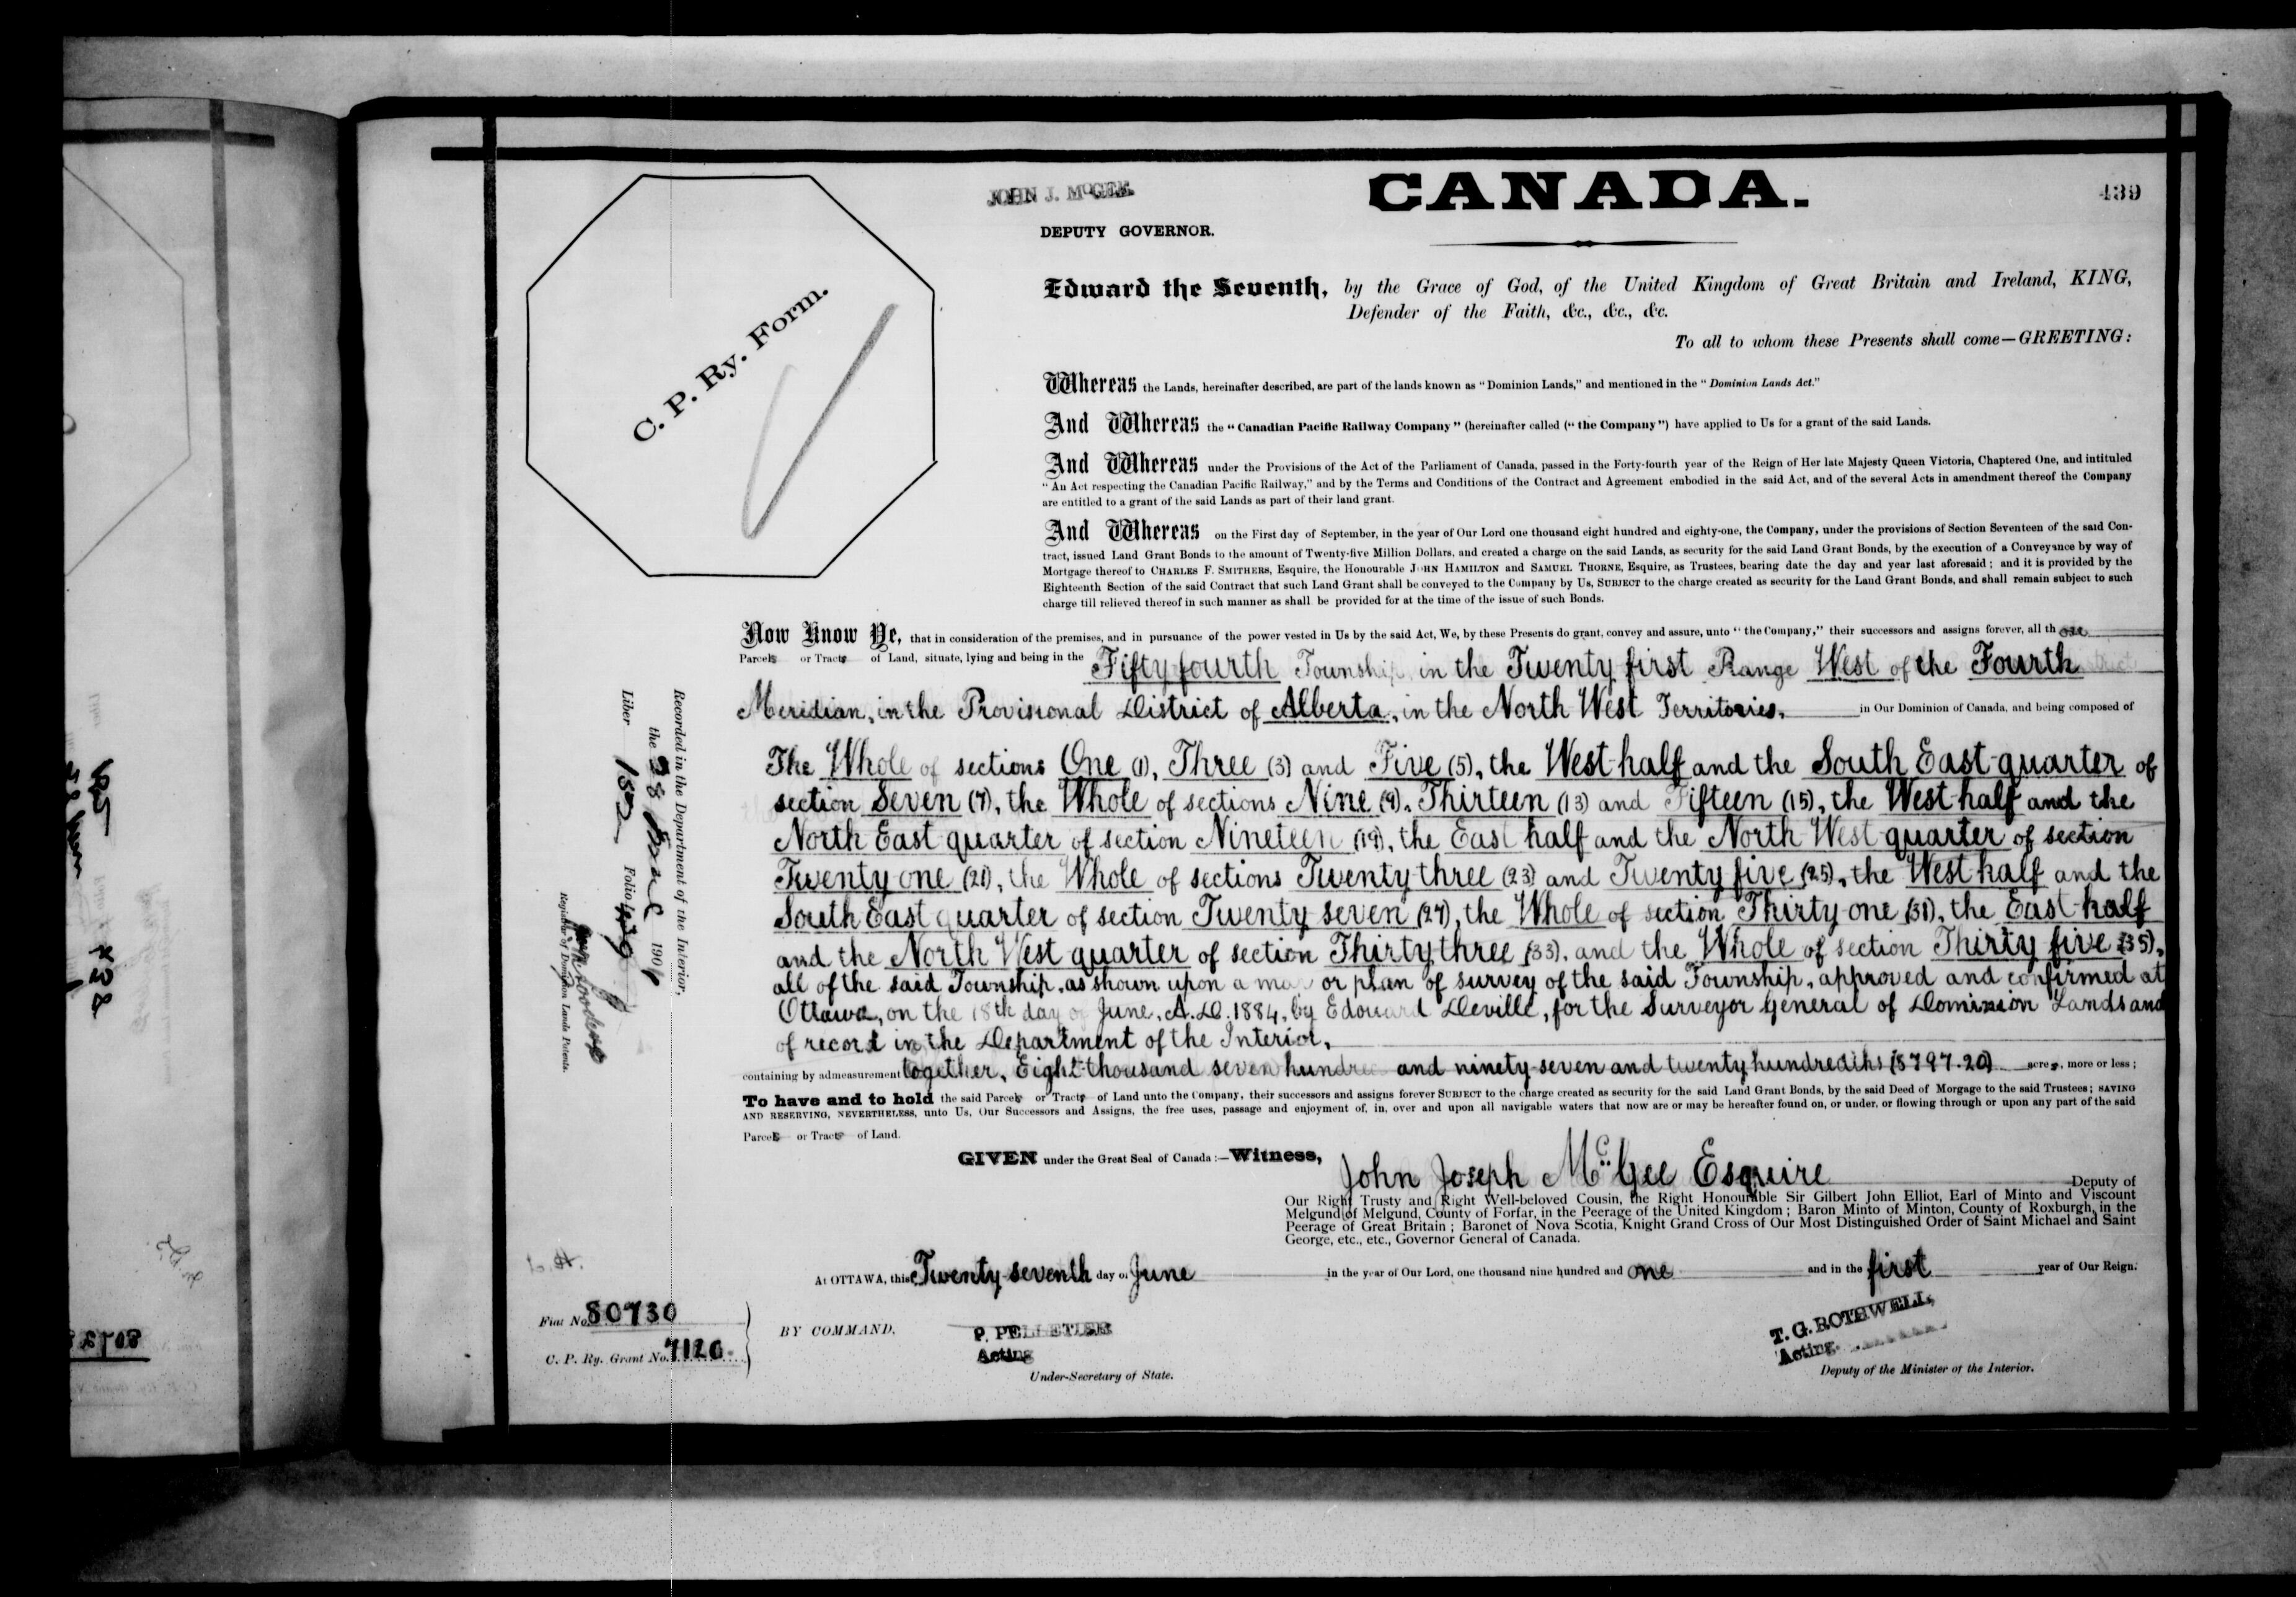 JOHN J. McGEE.
CANADA.
439
DEPUTY GOVERNOR.
C. P. Ry. Form.
Edward the Seventh, by the Grace of God, of the United Kingdom of Great Britain and Ireland, KING,
Defender of the Faith, &c., &c., &c.
To all to whom these Presents shall come—GREETING:
Whereas the Lands, hereinafter described, are part of the lands known as "Dominion Lands," and mentioned in the "Dominion Lands Act."
And Whereas the "Canadian Pacific Railway Company" (hereinafter called ("the Company") have applied to Us for a grant of the said Lands.
And Whereas under the Provisions of the Act of the Parliament of Canada, passed in the Forty-fourth year of the Reign of Her late Majesty Queen Victoria, Chaptered One, and intituled
"An Act respecting the Canadian Pacific Railway," and by the Terms and Conditions of the Contract and Agreement embodied in the said Act, and of the several Acts in amendment thereof the Company
are entitled to a grant of the said Lands as part of their land grant.
And Whereas on the First day of September, in the year of Our Lord one thousand eight hundred and eighty-one, the Company, under the provisions of Section Seventeen of the said Con-
tract, issued Land Grant Bonds to the amount of Twenty-five Million Dollars, and created a charge on the said Lands, as security for the said Land Grant Bonds, by the execution of a Conveyance by way of
Mortgage thereof to CHARLES F. SMITHERS, Esquire, the Honourable JOHN HAMILTON and SAMUEL THORNE, Esquire, as Trustees, bearing date the day and year last aforesaid; and it is provided by the
Eighteenth Section of the said Contract that such Land Grant shall be conveyed to the Company by Us, SUBJECT to the charge created as security for the Land Grant Bonds, and shall remain subject to such
charge till relieved thereof in such manner as shall be provided for at the time of the issue of such Bonds.
Now Know Ye, that in consideration of the premises, and in pursuance of the power vested in Us by the said Act, We, by these Presents do grant, convey and assure, unto "the Company," their successors and assigns forever, all th ose
Parcels or Tracts of Land, situate, lying and being in the Fifty fourth Township, in the Twenty first Range West of the Fourth
Meridian, in the Provisional District of Alberta, in the North West Territories, in Our Dominion of Canada, and being composed of
The Whole of sections One (1), Three (3) and Five (5), the West half and the South East quarter of
section Seven (7), the Whole of sections Nine (9), Thirteen (13) and Fifteen (15), the West half and the
North East quarter of section Nineteen (19), the East half and the North West quarter of section
Twenty one (21), the Whole of sections Twenty three (23) and Twenty five (25), the West half and the
South East quarter of section Twenty seven (27), the Whole of section Thirty one (31), the East half
and the North West quarter of section Thirty three (33), and the Whole of section Thirty five (35),
all of the said Township, as shown upon a map or plan of survey of the said Township, approved and confirmed at
Ottawa, on the 18th day of June, A.D. 1884, by Edouard Deville, for the Surveyor General of Dominion Lands and
of record in the Department of the Interior,
containing by admeasurement together, Eight thousand seven hundred and ninety-seven and twenty hundredths (8797.20) acres, more or less;
To have and to hold the said Parcels or Tracts of Land unto the Company, their successors and assigns forever SUBJECT to the charge created as security for the said Land Grant Bonds, by the said Deed of Morgage to the said Trustees; SAVING
AND RESERVING, NEVERTHELESS, unto Us, Our Successors and Assigns, the free uses, passage and enjoyment of, in, over and upon all navigable waters that now are or may be hereafter found on, or under, or flowing through or upon any part of the said
Parcels or Tracts of Land.
GIVEN under the Great Seal of Canada:—Witness, John Joseph McGee Esquire Deputy of
Our Right Trusty and Right Well-beloved Cousin, the Right Honourable Sir Gilbert John Elliot, Earl of Minto and Viscount
Melgund of Melgund, County of Forfar, in the Peerage of the United Kingdom; Baron Minto of Minton, County of Roxburgh, in the
Peerage of Great Britain; Baronet of Nova Scotia, Knight Grand Cross of Our Most Distinguished Order of Saint Michael and Saint
George, etc., etc., Governor General of Canada.
At OTTAWA, this Twenty-seventh day of June in the year of Our Lord, one thousand nine hundred and one and in the first year of Our Reign.
Fiat No. 80730
C. P. Ry. Grant No. 7120
BY COMMAND,
P. PELLETIER
Acting
Under-Secretary of State.
T. G. ROTHWELL,
Acting
Deputy of the Minister of the Interior.
Recorded in the Department of the Interior,
the 28 June 1901
Liber 182 Folio 439
Registrar of Dominion Lands Patents.